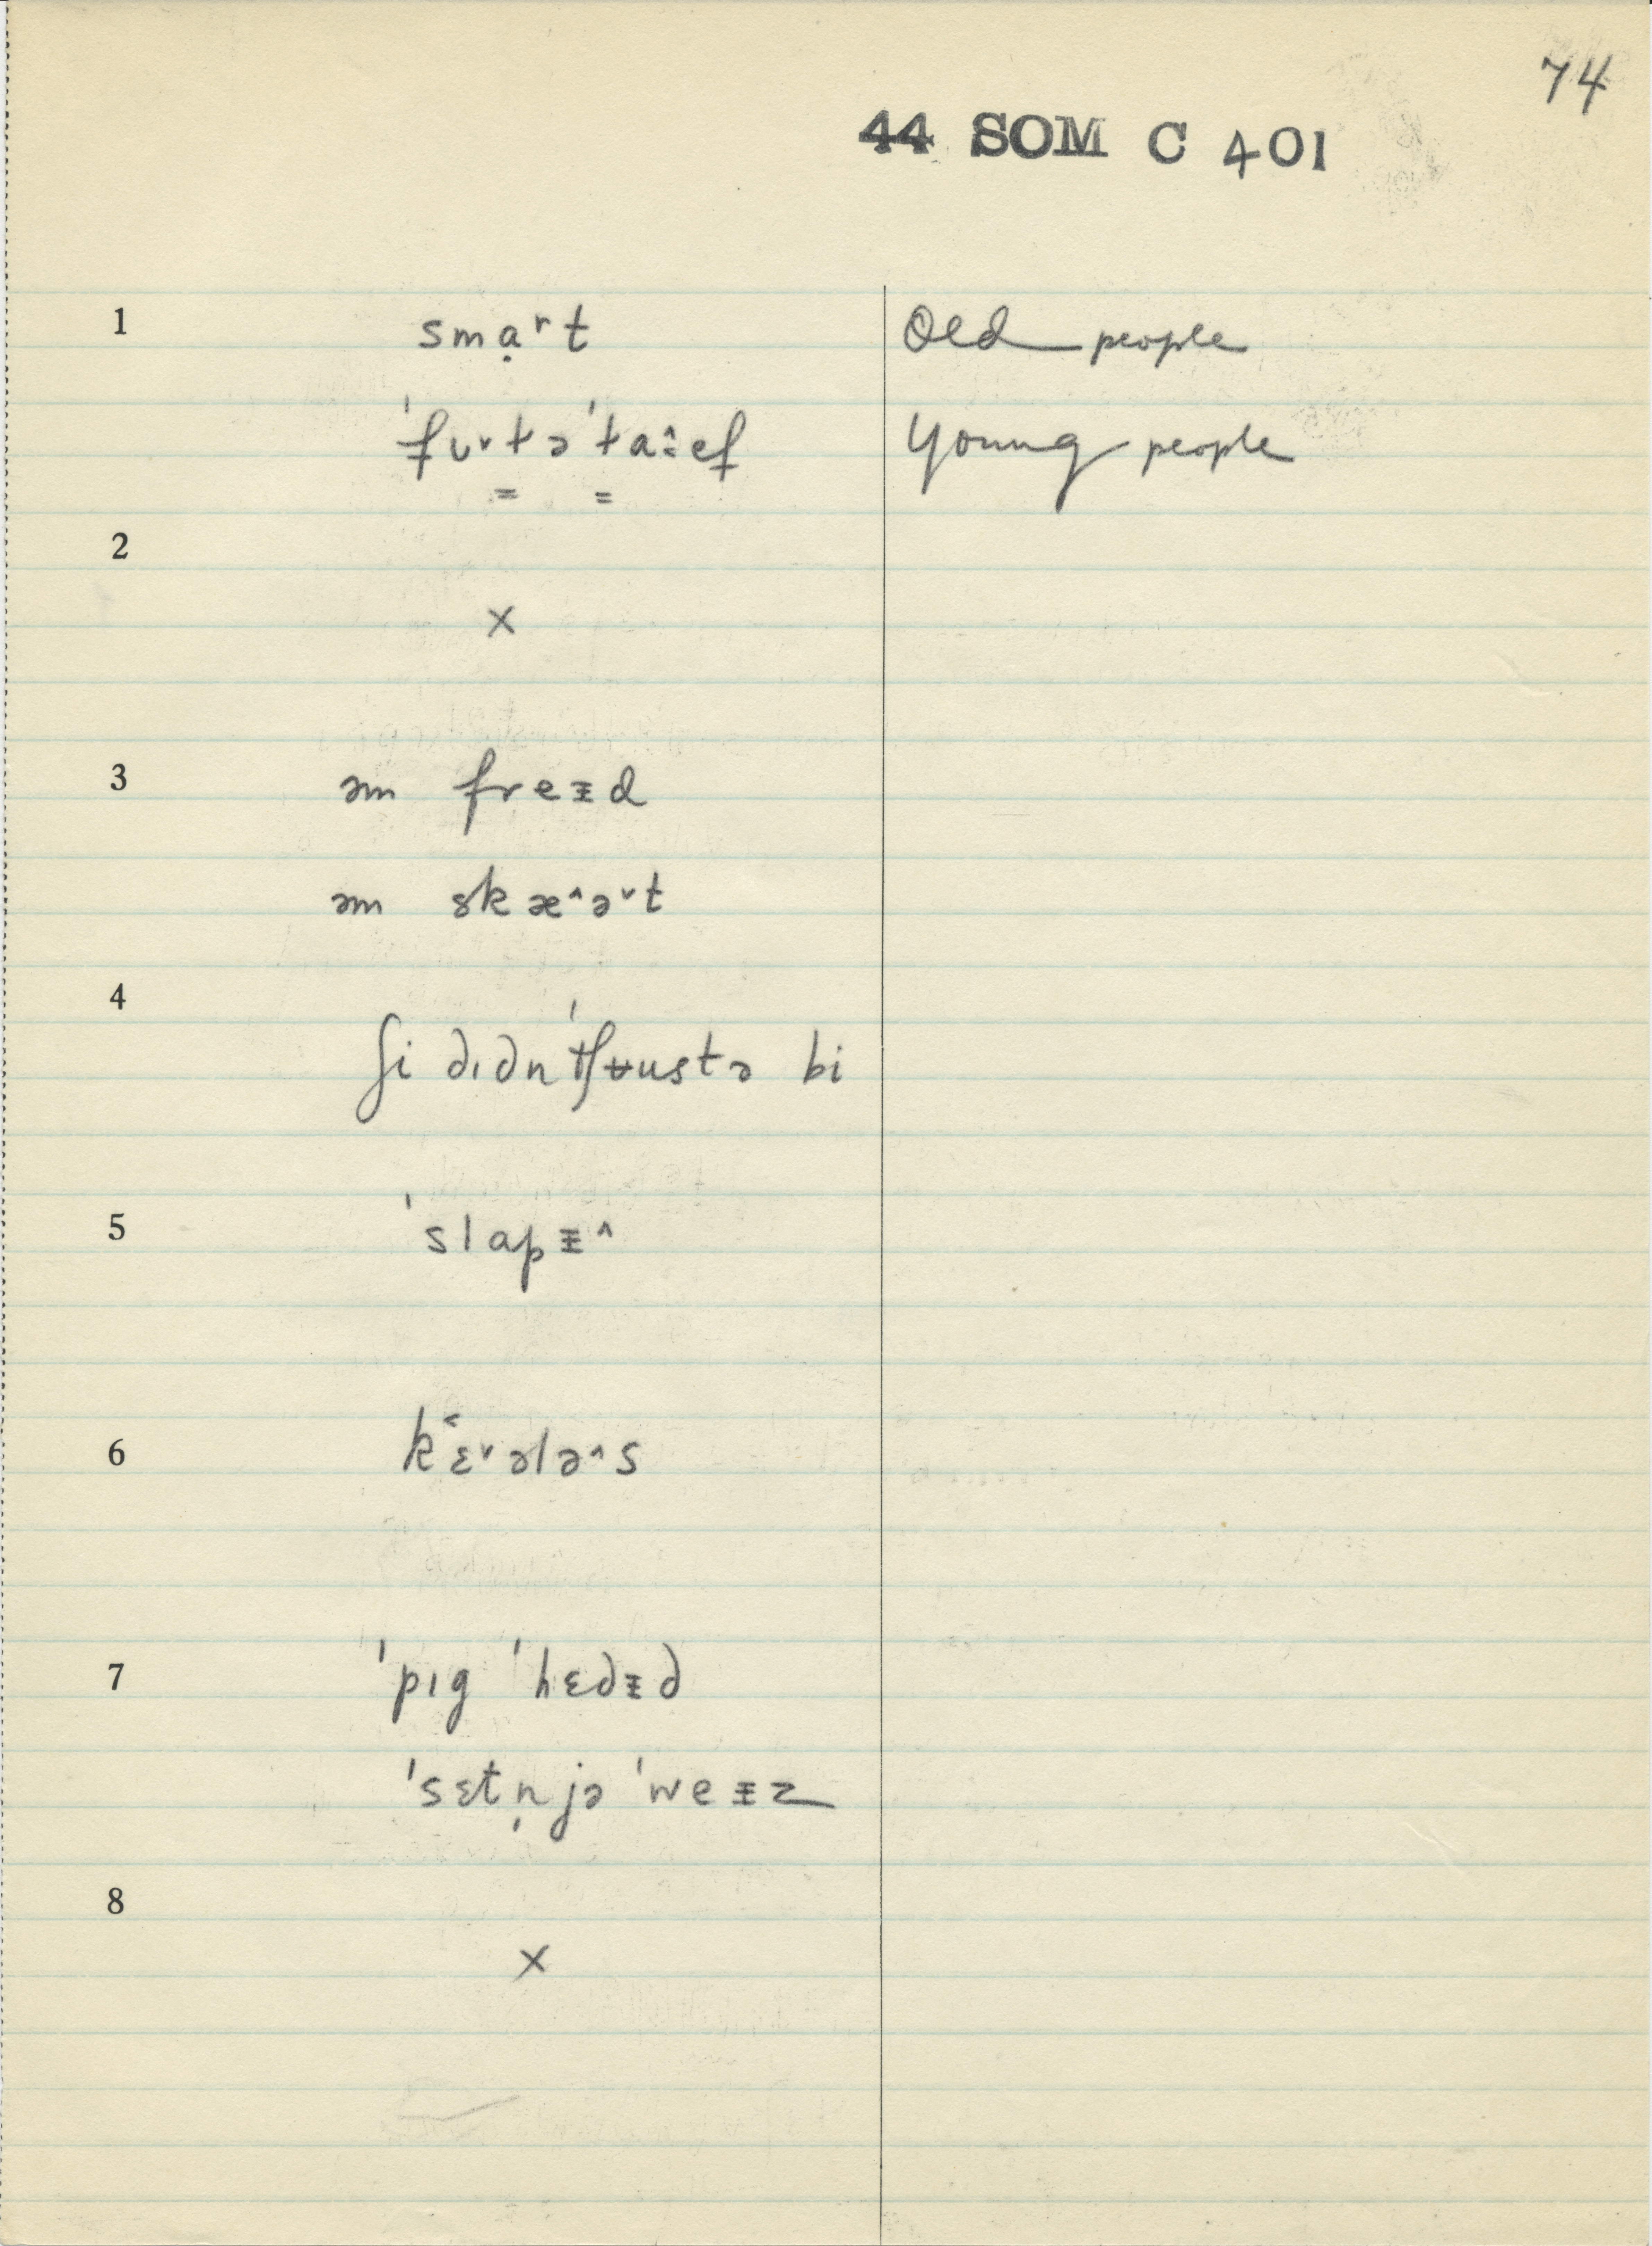 74
44 SOM C 401
1 smạʳt Old people
ˈfʋ˅t̳əˈt̳a̭ːef Young people
2
x
3 əm freᵻd
əm skæ^ə˅t
4
ʃi dɪdnˈtʃʉustə bi
5 ˈslapᵻ^
6 k˂ɛ˅ələ^s
7 ˈpɪg ˈhɛdᵻd
ˈsɛtn̩jə ˈweᵻz
8
x